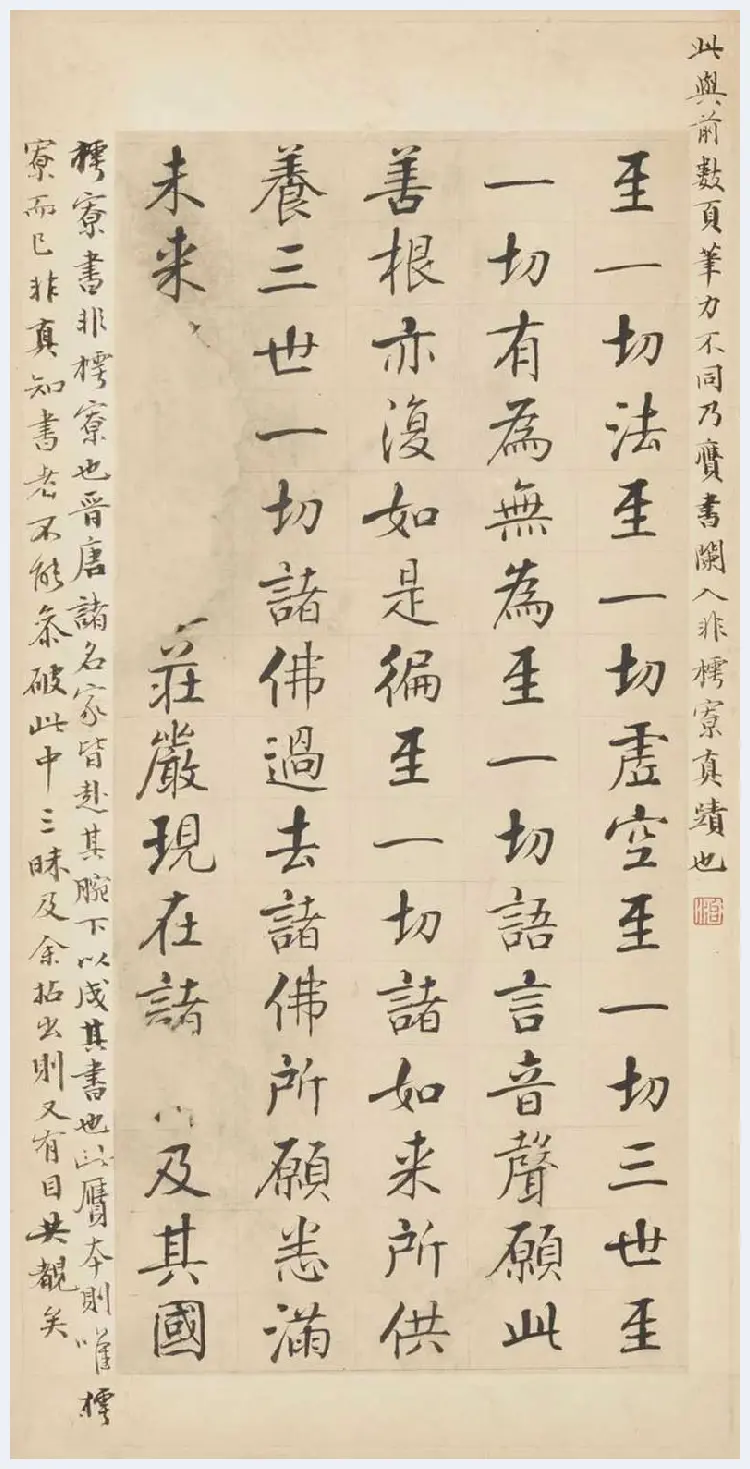 此與前數頁筆力不同乃贋書闌入非樗寮真蹟也
至一切法至一切虛空至一切三世至
一切有為無為至一切語言音聲願此
善根亦復如是徧至一切諸如来所供
養三世一切諸佛過去諸佛所願悉滿
未来莊嚴現在諸及其國
樗寮書非樗寮也晉唐諸名家皆赴其腕下以成其書也此贋本則唯樗
寮而已非真知書者不能參破此中三昧及余拈出則又有目共覩矣